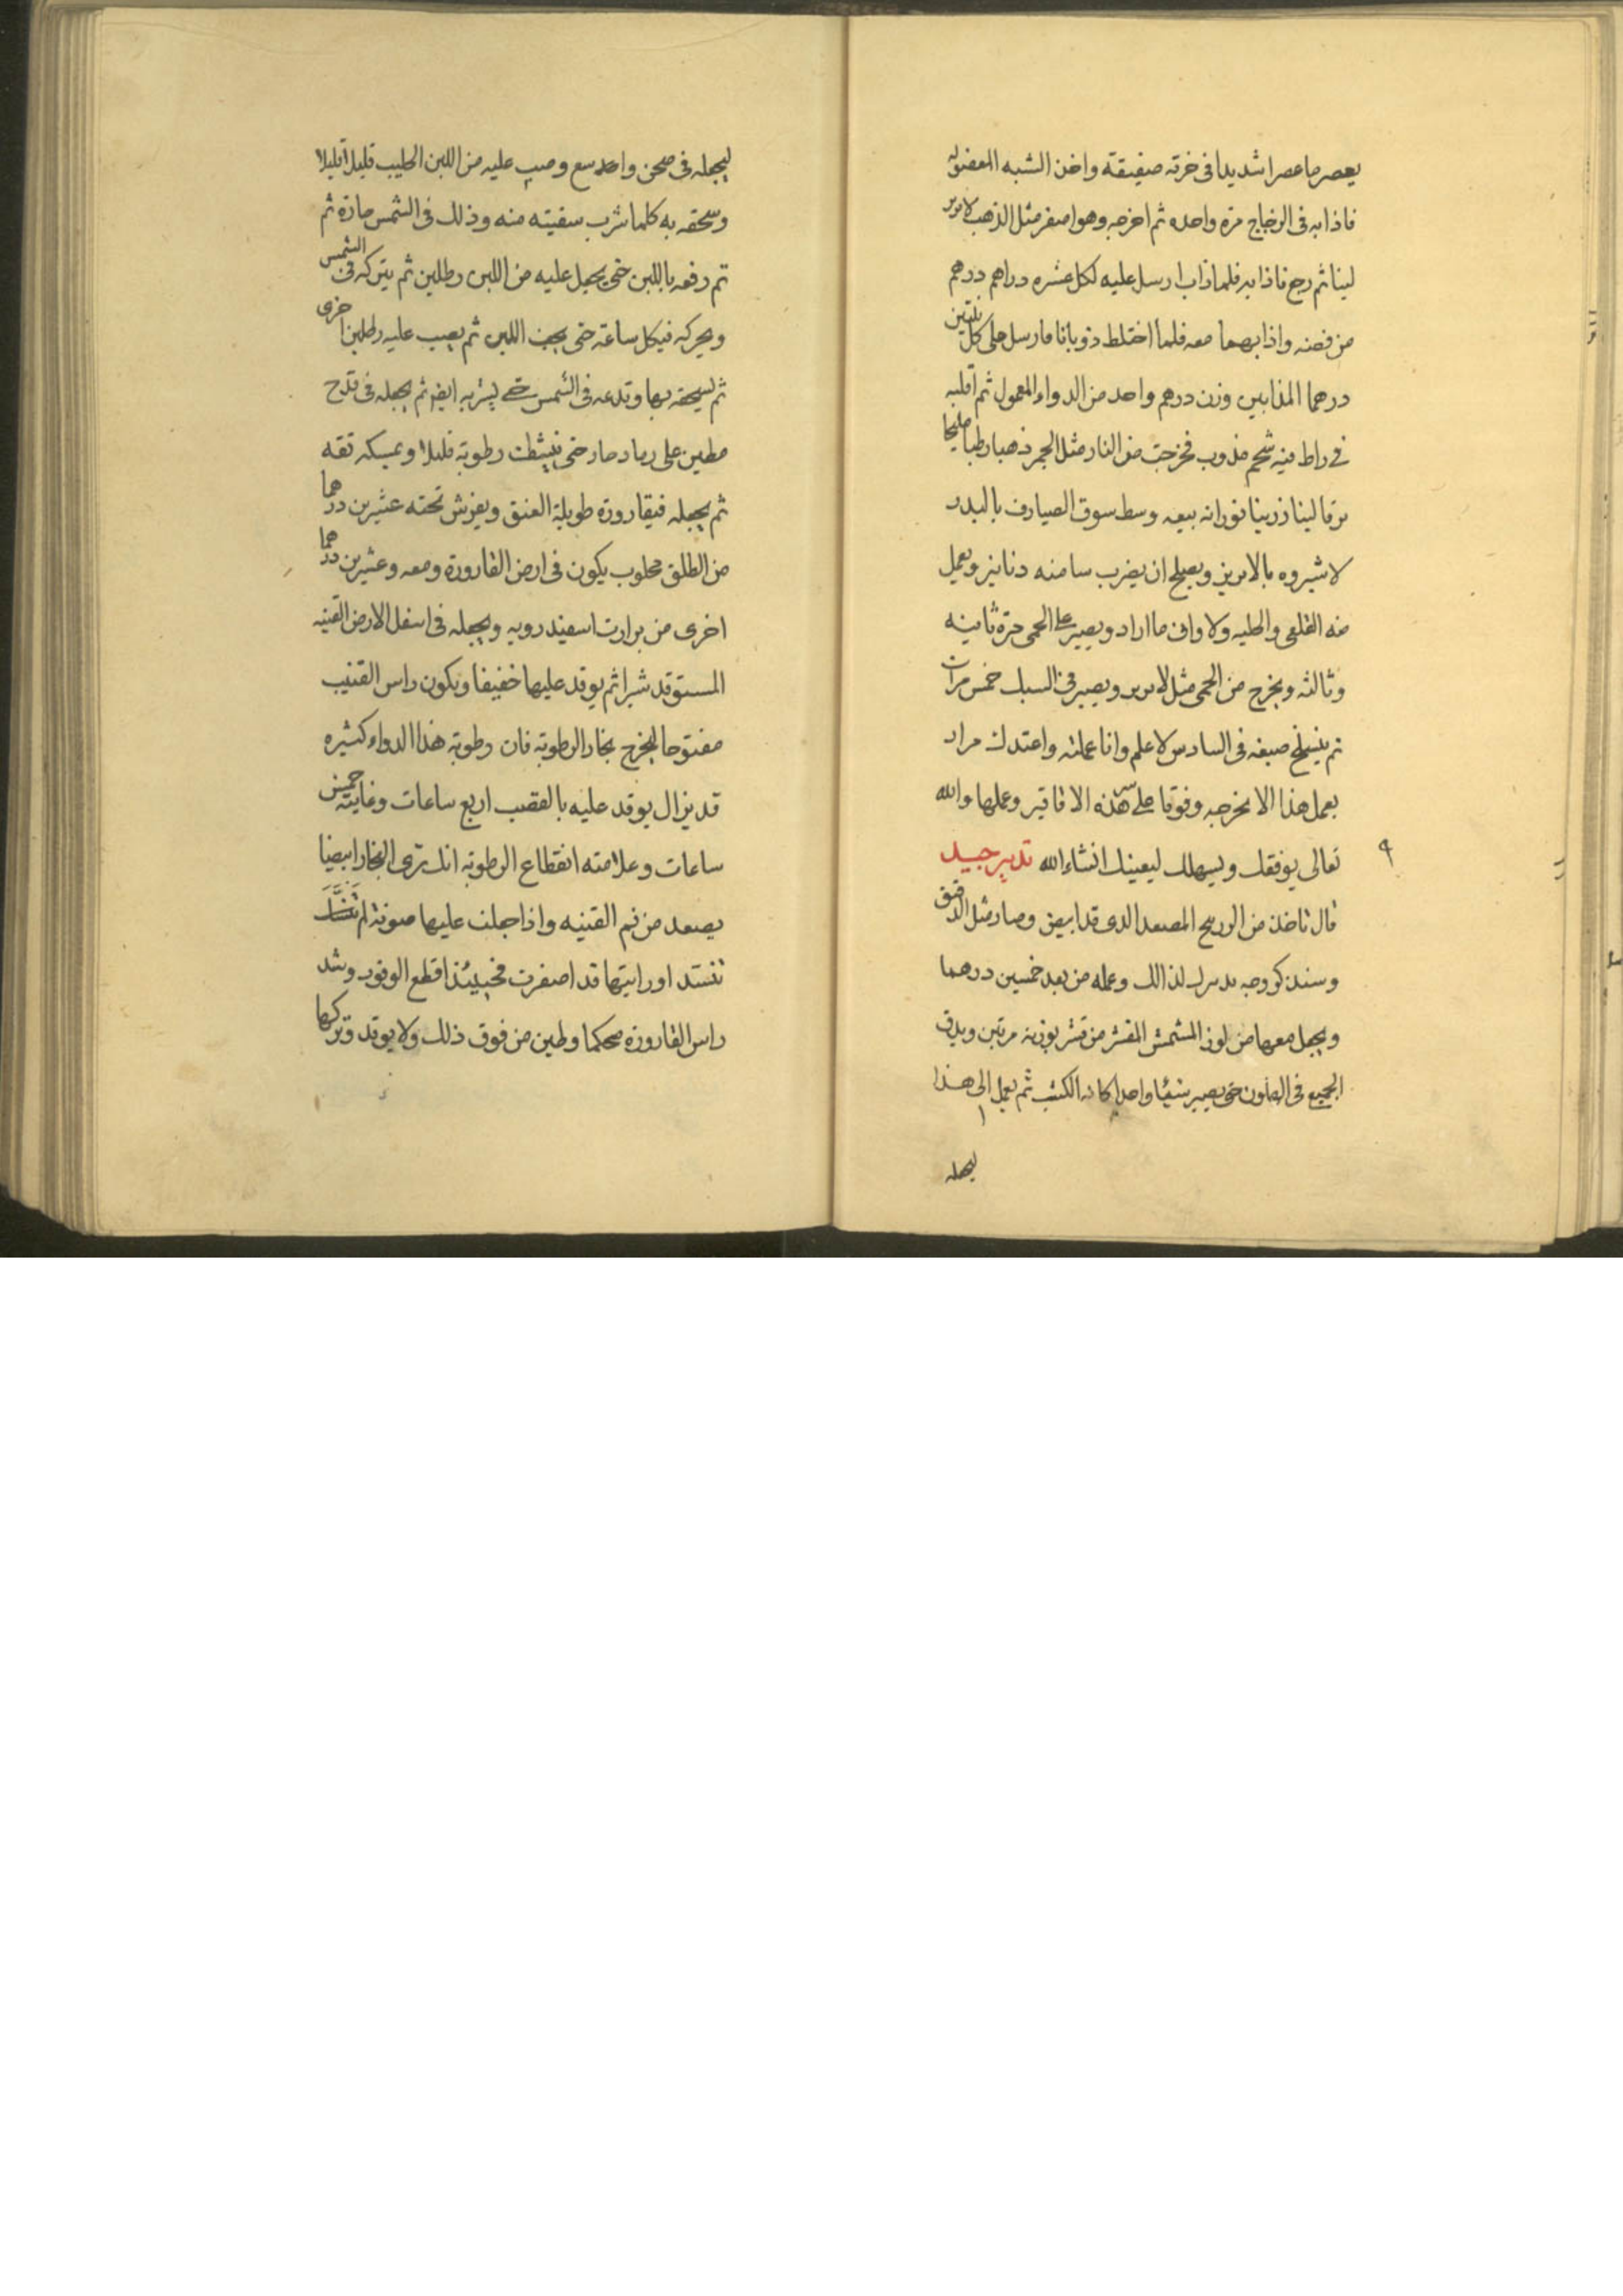 يعصرها عصرا شديدا فى خرقه صفيقة واخذ الشبه المعضوله
فاذابه فى الزجاج مرة واحده ثم اخرجه وهو اصفر مثل الذهب
لينا ثم رجع فاذابه فلما ذاب ارسل عليه لكل عشره دراهم درهم
من فضه واذابهما معه فلما اختلط ذوبانا فارسل على كل
درهما المذابين وزن درهم واحد من الدواء المعمول ثم اقلبه
فى راط فيه شحم مذوب فخرجت من النار مثل الجمر ذهبا رطبا مليحا
وسط سوق الصيارف بالبدر
لاشيروه بالابريز ويصلح ان يضرب سا منه دنانير ويعمل
منه القلعى والحليه ولاوانى ما اراد ويصير على الحمى مرة ثانيه
وثالثه ويخرج من الحمى مثل لابرير ويصير فى السبك خمس مرات
ثم ينسلخ صبغه فى السادس لاعلم وانا عملته واعتدلت مرار
بعمل هذا الا لخرجه وفوقا على هذه الاقاقير وعملها والله
تعالى يوفقك ويسهلك ليعينك انشاء الله تدبير جيد
قال تاخذ من الوريح المصعد الدى قد ابيض وصار مثل الدقيق
وسنذكر وجه لذالك وعمله من بعد خمسين درهما
ويجعل معها من لوز المشمش المقشر من قشر بوزنه مرتين ويدق
الجميع فى الهاون حتى يصير شيئا واحدا كانه الكشب ثم يعمل الى هذا
ليجعله
ليجعله فى صحن واحد سع وصب عليه من اللبن الحليب قليلا قليلا
وسحقه به كلما شرب سقيته منه وذلك فى الشمس حارة ثم
ثم رفعه باللبن حتى يجعل عليه من اللبن رطلين ثم يتركه فى الشمس
ويحركه فيكل ساعة حتى يجف اللبن ثم يصب عليه رطلين اخرى
ثم ليسحقه بها وتدعه فى الشمس حتى يشربه ايضا ثم يجعله فى قدح
مطين على رماد حار حتى ينشفت رطوبة قليلا ويمسكه ثقه
ثم يجعله فيقارورة طويلة العنق ويفرش تحته عشرين درهما
من الطلق محلوب يكون فى ارض القارورة ومعه وعشرين درهما
اخرى من برارت اسفيدرويه ويجعله فى اسفل الارض القنيه
المستوقد شبرا ثم يوقد عليها خفيفا ويكون راس القنيب
مفتوحا ليخرج بخار الرطوبة فان رطوبة هذا الدواء كثيره
قد يزال يوقد عليه بالقصب اربع ساعات وغايته خمس
ساعات وعلامته انقطاع الرطوبة انك ترى البخار ابيضا
يصعد من فم القنيه واذا جعلت عليها صوفة لم
تنسد اورايتها قد اصفرت فحينئذا قطع الوقود وشد
راس القارورة محكما وطين من فوق ذلك ولا يوقد وتركها